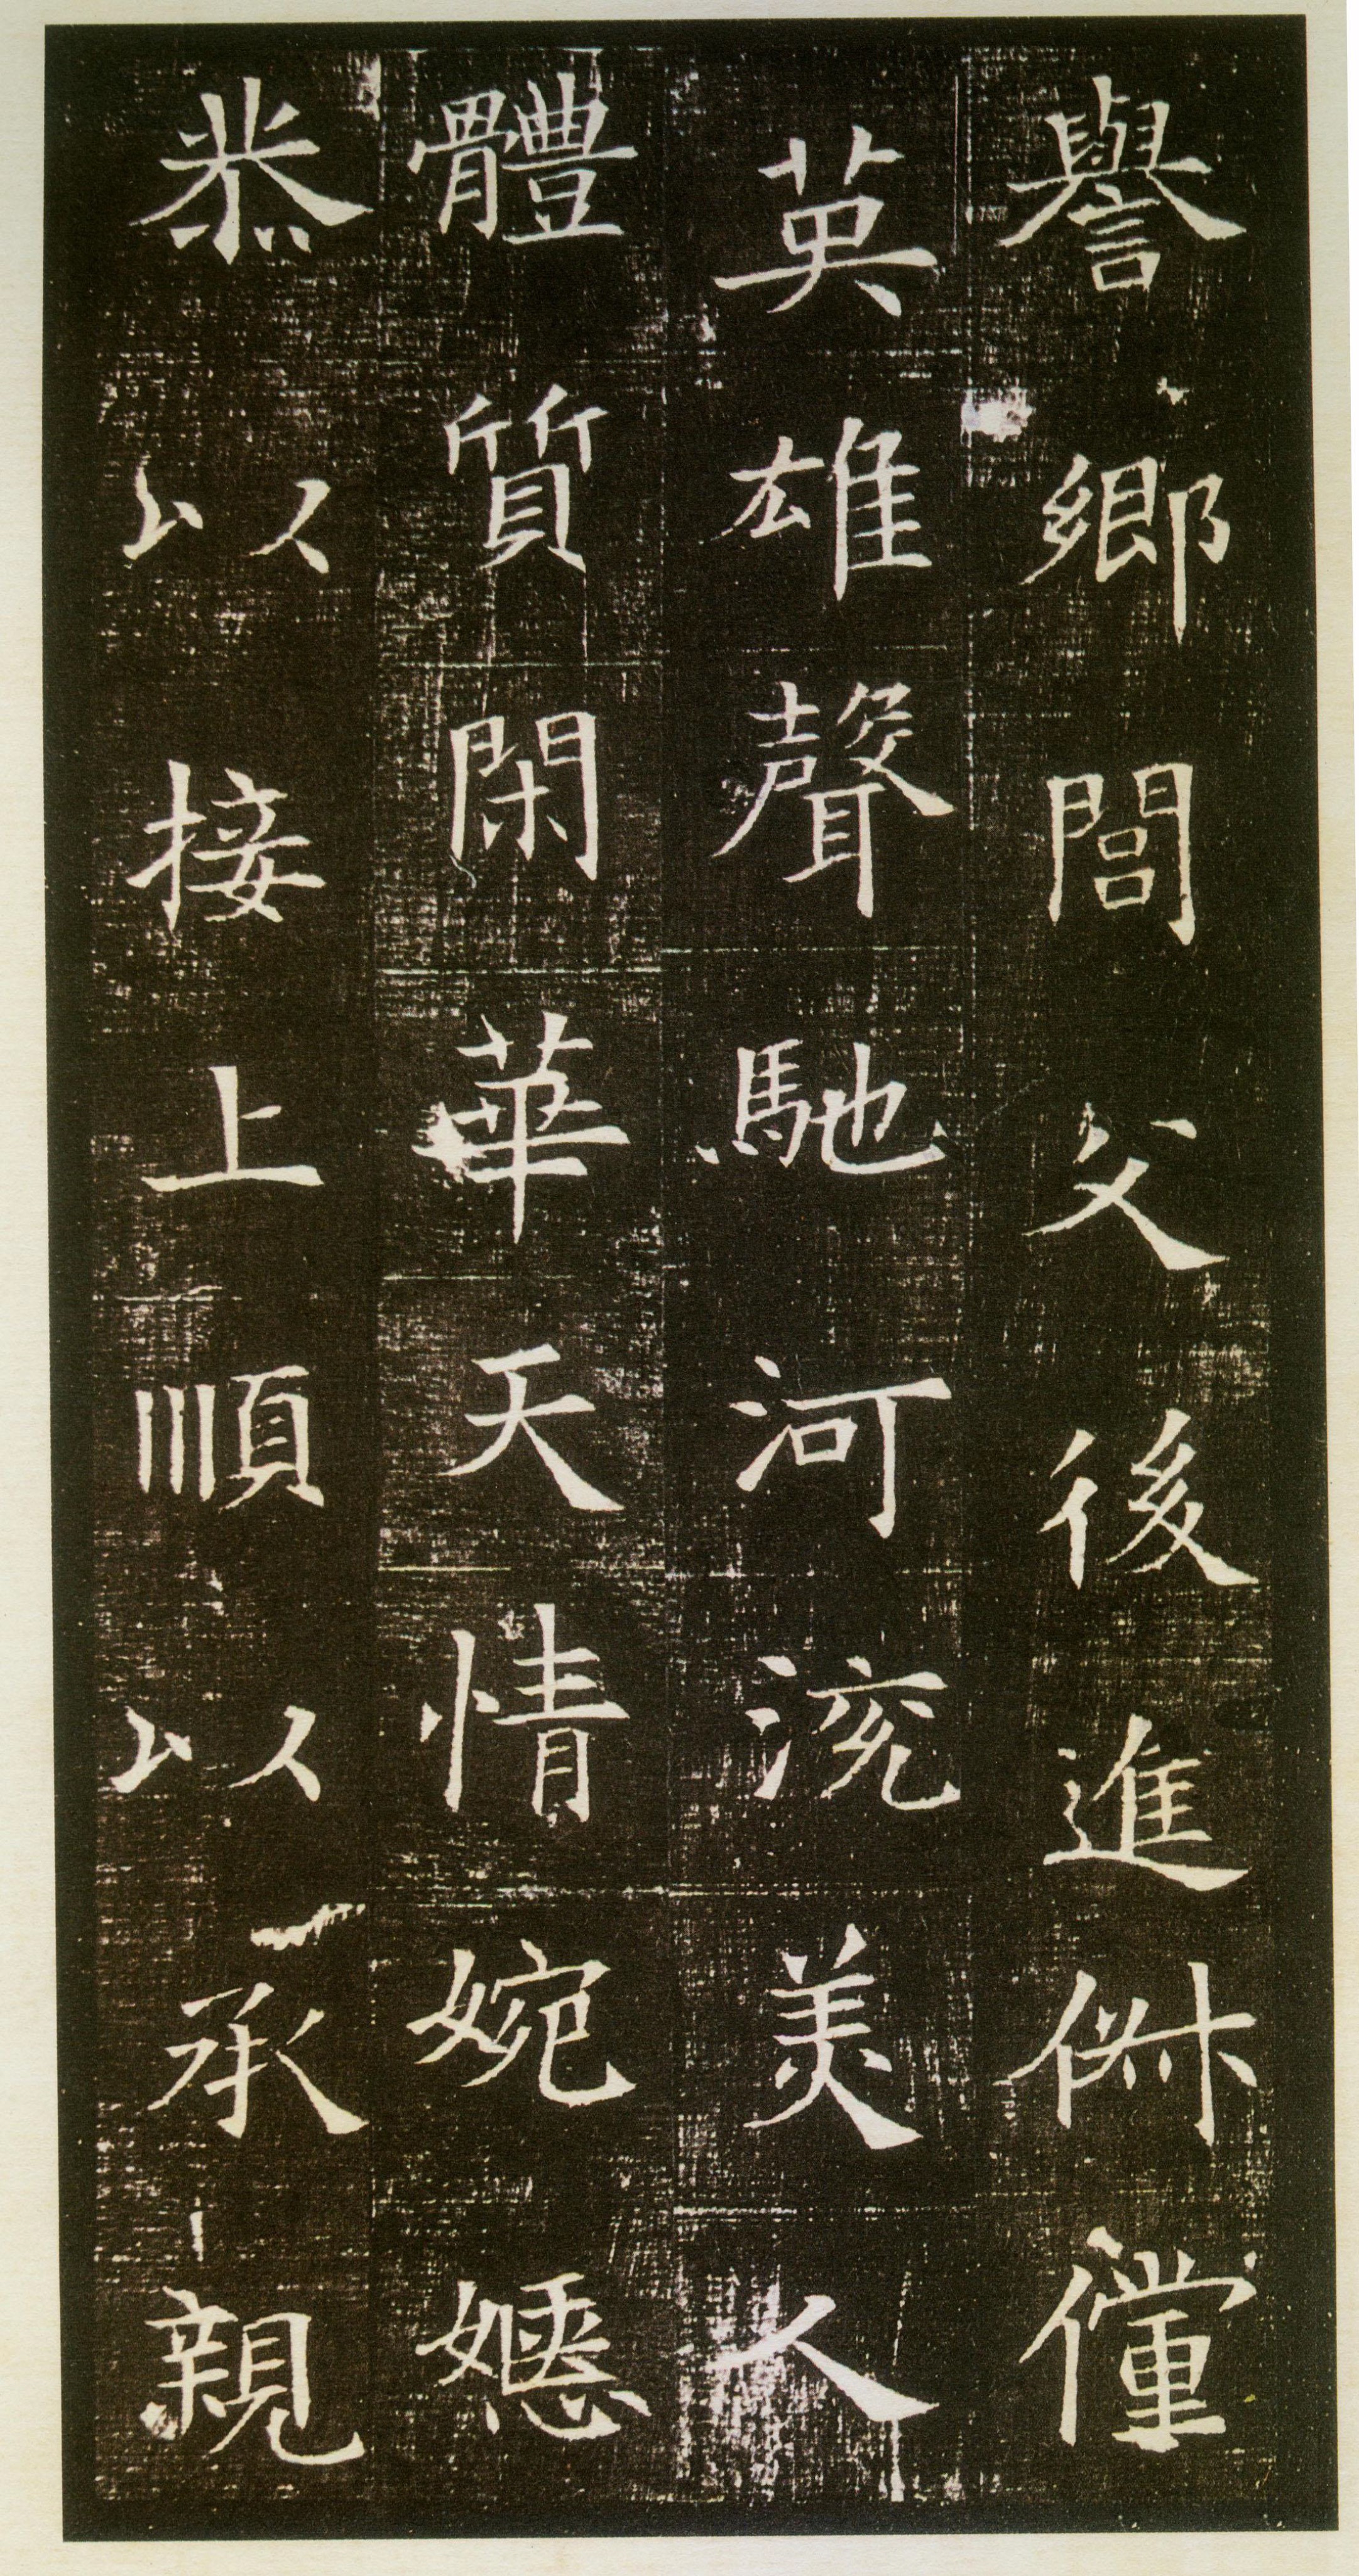 譽鄉閭父後進俶儻
英雄聲馳河渷美人
體質閑華天情婉嫕
恭以接上順以承親